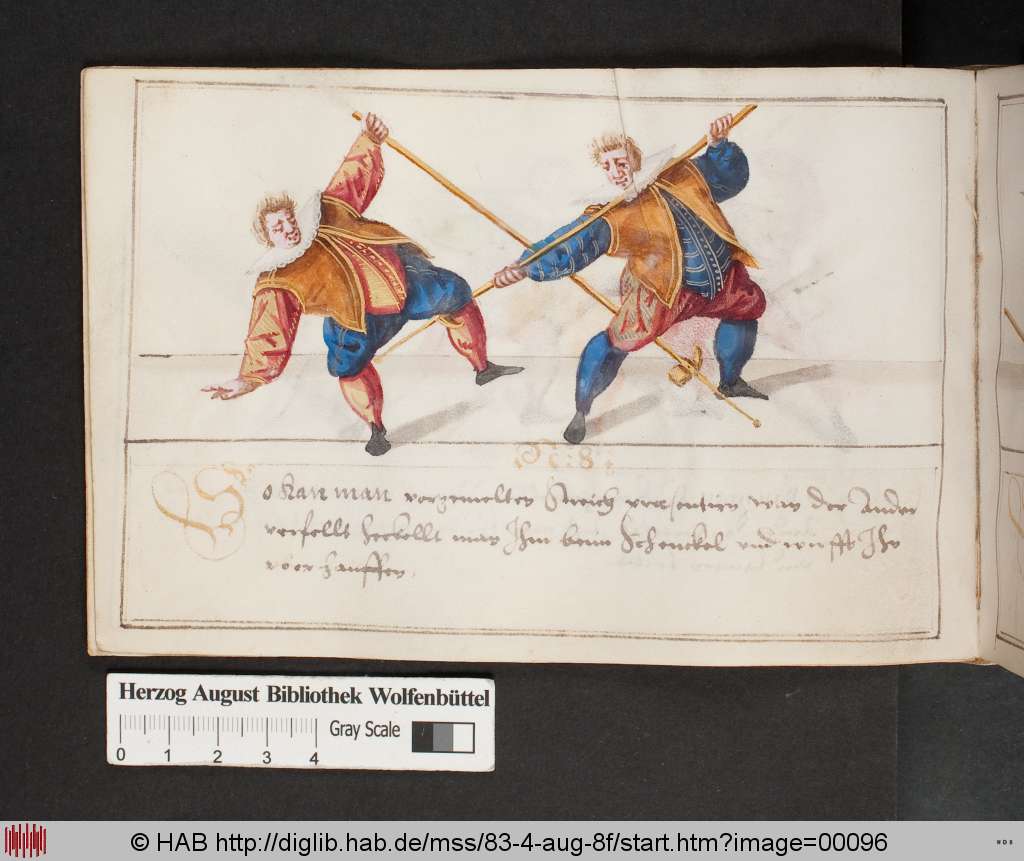 N: 8.
So Kan man vorgemeltes Streich presentirn, wan der Ander
verfellt heckellt man Ihm beim Schenckel und würfft Ihn
vber hauffen.
Herzog August Bibliothek Wolfenbüttel
Gray Scale
0 1 2 3 4
© HAB http://diglib.hab.de/mss/83-4-aug-8f/start.htm?image=00096